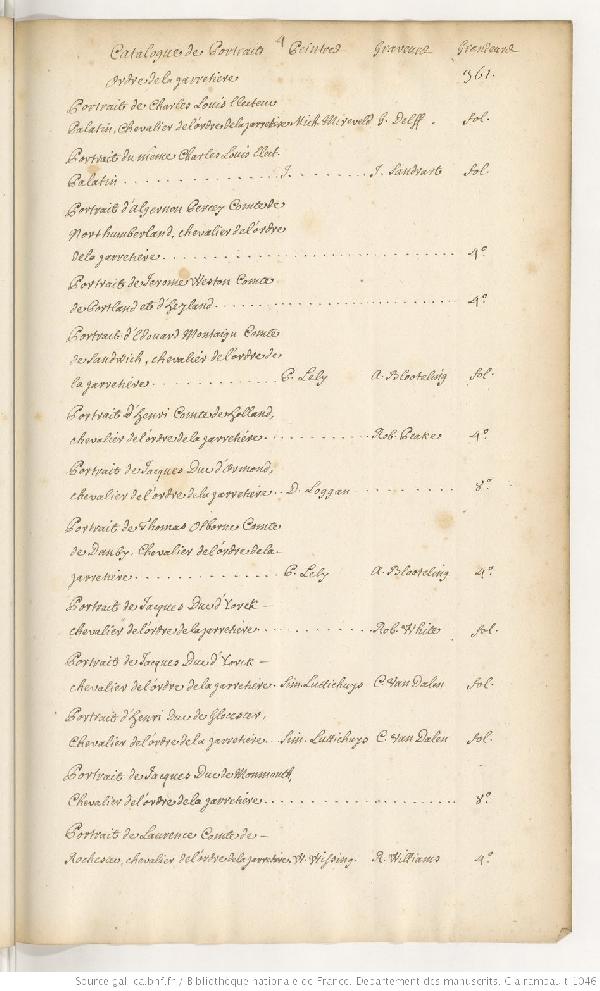 4
Catalogue de Portraits Peintres Graveurs Grandeurs
ordre de la jarretiere 361.
Portrait de Charles Louis Electeur
Palatin, Chevalier de l'ordre de la jarretiere Mich. Mireveld G. Delff. fol.
Portrait du même Charles Louis Elect.
Palatin J. J. Sandrart fol.
Portrait d'Algernon Percey Comte de
Northumberland, chevalier de l'ordre
de la jarretiere 4º
Portrait de Jerome Weston Comte
de Portland et d'Heyland 4º
Portrait d'Edouard Montaigu Comte
de Sandwich, chevalier de l'ordre de
la jarretiere P. Lely A. Blooteling fol.
Portrait d'Henri Comte de Holland,
chevalier de l'ordre de la jarretiere Rob. Peake 4º
Portrait de Jacques Duc d'Ormond,
chevalier de l'ordre de la jarretiere D. Loggan 8º
Portrait de Thomas Osborne Comte
de Danby. Chevalier de l'ordre de la
jarretiere P. Lely A. Blooteling 4º
Portrait de Jacques Duc d'Yorck
chevalier de l'ordre de la jarretiere Rob. White fol.
Portrait de Jacques Duc d'Yorck
chevalier de l'ordre de la jarretiere Sim. Luttichuys C. Van Dalen fol.
Portrait d'Henri Duc de Glocester,
Chevalier de l'ordre de la jarretiere Sim. Luttichuys C. Van Dalen fol.
Portrait de Jacques Duc de Monmouth,
Chevalier de l'ordre de la jarretiere 8º
Portrait de Laurence Comte de
Rochester, chevalier de l'ordre de la jarretiere W. Wissing R. Williams 4º
Source gallica.bnf.fr / Bibliothèque nationale de France. Département des manuscrits. Clairambault 1046